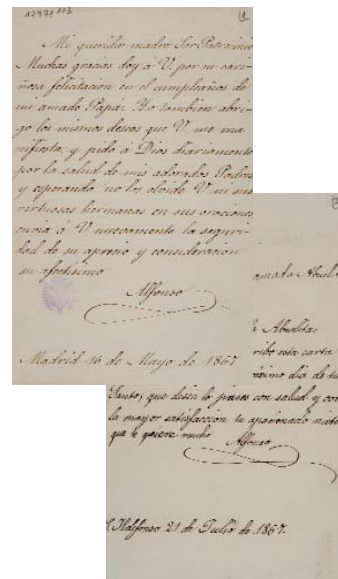 12971 103
(1
Mi querida madre Sor Patrocinio
Muchas gracias doy á V. por su cari-
ñosa felicitacion en el cumpleaños de
mi amado Papá: Yo tambien abri-
go los mismos deseos que V. me ma
nifiesta, y pido á Dios diariamente
por la salud de mis adorados Padres
y esperando no los olvide V ni sus
virtuosas hermanas en sus oraciones
envia á V nuevamente la seguri-
dad de su aprecio y consideracion
su afectisimo
Alfonso
Madrid 16 de Mayo de 1867
amada Abuelita
Abuelita:
ribo esta carta
óximo dia de tu
Santo; que desea lo pases con salud y con
la mayor satisfaccion tu apasionado nieto
que te quiere mucho Alfonso
S. Ildefonso 21 de Julio de 1867.